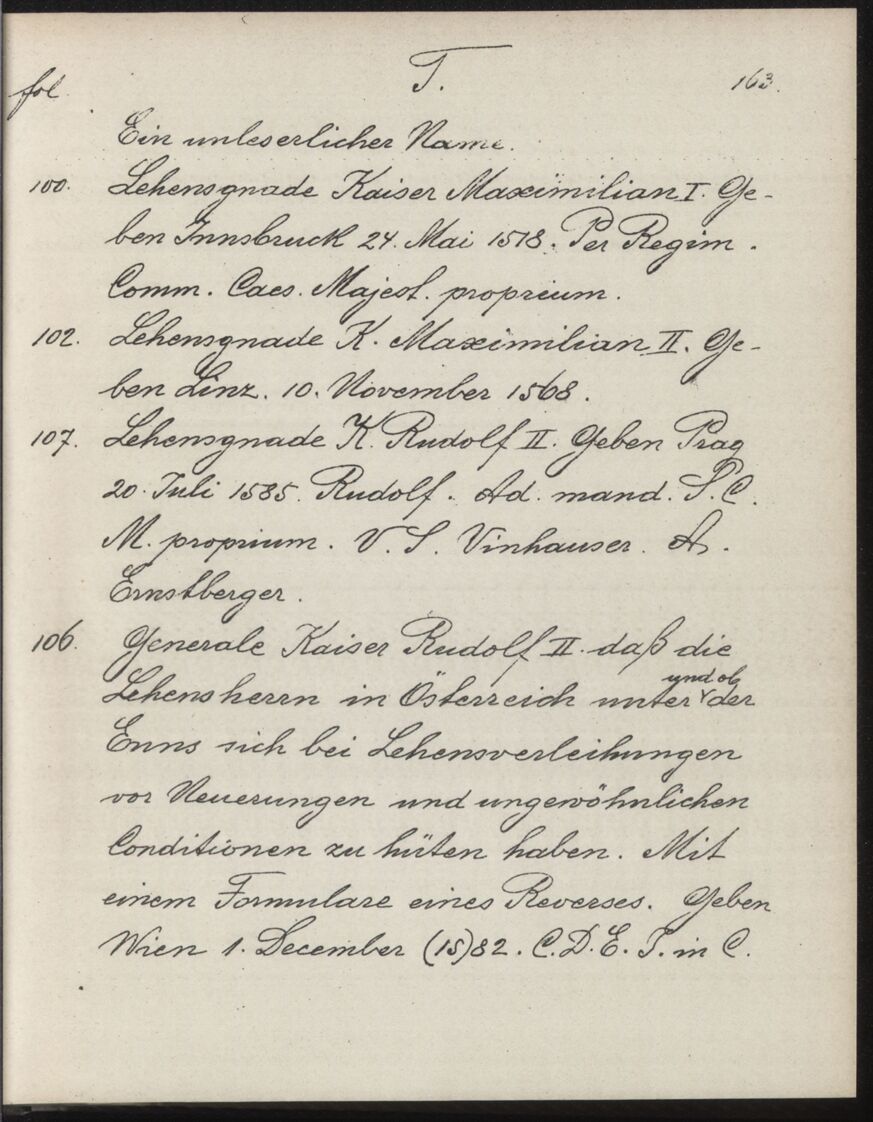 fol. T. 163.
Ein unleserlicher Name.
100. Lehensgnade Kaiser Maximilian I. Ge-
ben Innsbruck 24. Mai 1518. Per Regim.
Comm. Caes. Majest. proprium.
102. Lehensgnade K. Maximilian II. Ge-
ben Linz. 10. November 1568.
107. Lehensgnade K. Rudolf II. Geben Prag
20. Juli 1585. Rudolf. Ad. mand. S. C.
M. proprium. V. S. Vinhauser. A.
Ernstberger.
106. Generale Kaiser Rudolf II. daß die
Lehensherrn in Österreich unter und ob der
Enns sich bei Lehensverleihungen
vor Neuerungen und ungewöhnlichen
Conditionen zu hüten haben. Mit
einem Formulare eines Reverses. Geben
Wien 1. December (15)82. C. D. E. S. in C.